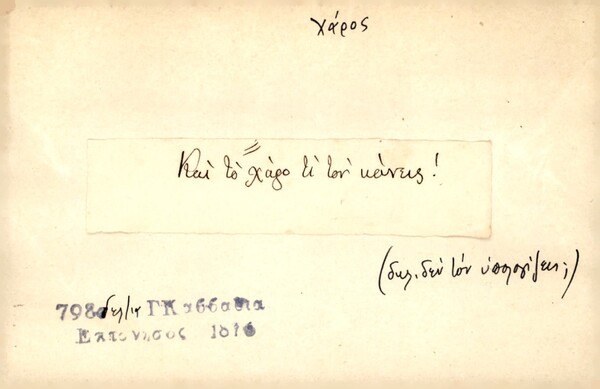 χάρος
Καὶ τὸ χάρο τί τὸν κάνεις!
(δηλ. δὲν τὸν ὑπολογίζεις;)
798 Γ Κασσαβια
Επτανησος 1876